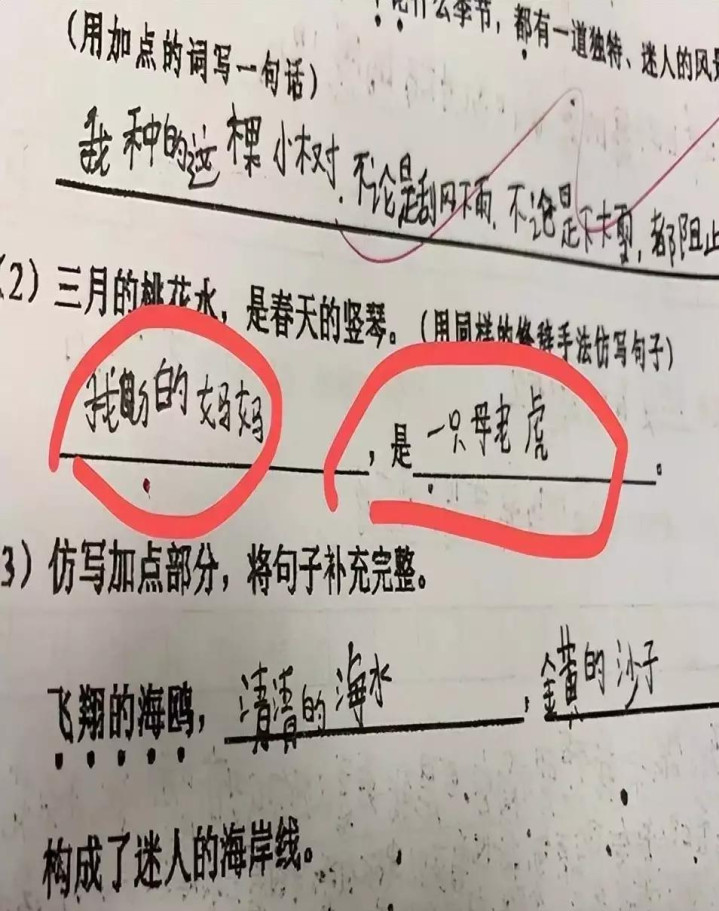 论什么季节，都有一道独特、迷人的风景
（用加点的词写一句话）
我种的这棵小树，不论是刮风下雨，不论是下大雪，都阻止
（2）三月的桃花水，是春天的竖琴。（用同样的修辞手法仿写句子）
的妈妈，是一只母老虎。
3）仿写加点部分，将句子补充完整。
飞翔的海鸥，清清的海水，金黄的沙子
构成了迷人的海岸线。